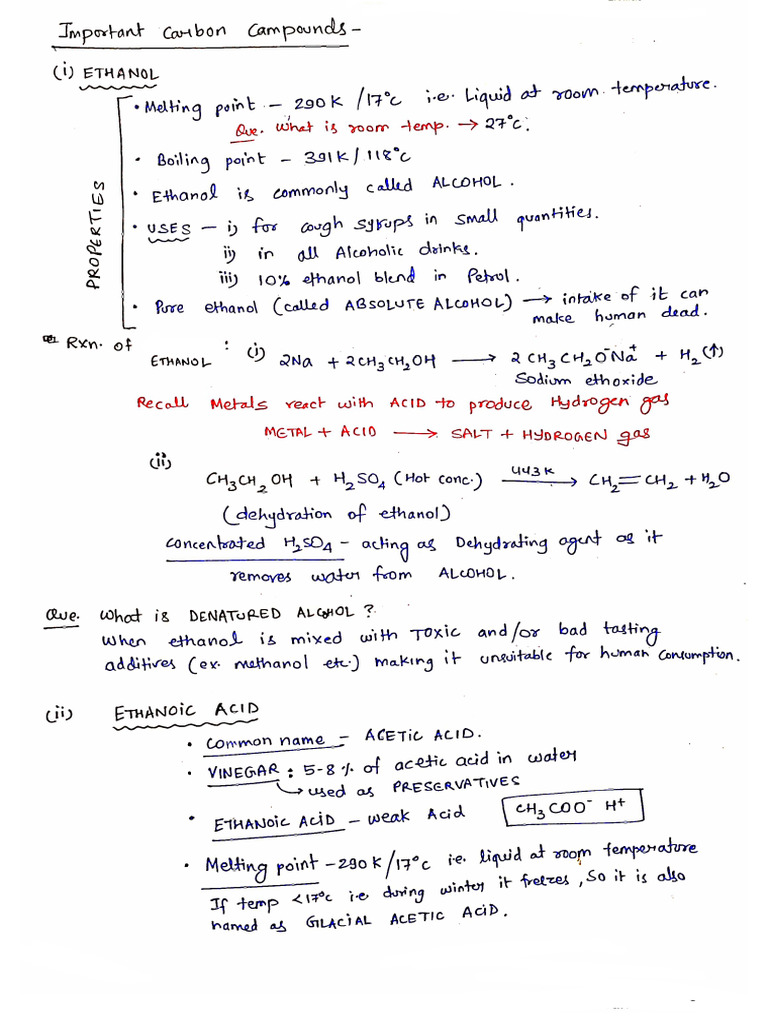 Important Carbon Compounds-
(i) ETHANOL
PROPERTIES
• Melting point - 290K /17°C i.e. Liquid at room temperature.
Que. What is room temp. → 27°C.
• Boiling point - 391K/118°C
• Ethanol is commonly called ALCOHOL.
• USES - i) for cough syrups in small quantities.
ii) in all Alcoholic drinks.
iii) 10% ethanol blend in Petrol.
• Pure ethanol (called ABSOLUTE ALCOHOL) → intake of it can
make human dead.
Rxn. of ETHANOL : (i) 2Na + 2CH₃CH₂OH → 2CH₃CH₂O⁻Na⁺ + H₂(↑)
Sodium ethoxide
Recall Metals react with ACID to produce Hydrogen gas
METAL + ACID → SALT + HYDROGEN gas
(ii) CH₃CH₂OH + H₂SO₄ (Hot conc.) 443K → CH₂=CH₂ + H₂O
(dehydration of ethanol)
Concentrated H₂SO₄ - acting as Dehydrating agent as it
removes water from ALCOHOL.
Que. What is DENATURED ALCOHOL ?
When ethanol is mixed with TOXIC and/or bad tasting
additives (ex. methanol etc.) making it unsuitable for human consumption.
(ii) ETHANOIC ACID
• Common name - ACETIC ACID.
• VINEGAR : 5-8% of acetic acid in water
↳ used as PRESERVATIVES
• ETHANOIC ACID - weak Acid CH₃COO⁻ H⁺
• Melting point - 290K/17°C i.e. liquid at room temperature
If temp <17°C i.e during winter it freezes, So it is also
named as GLACIAL ACETIC ACID.